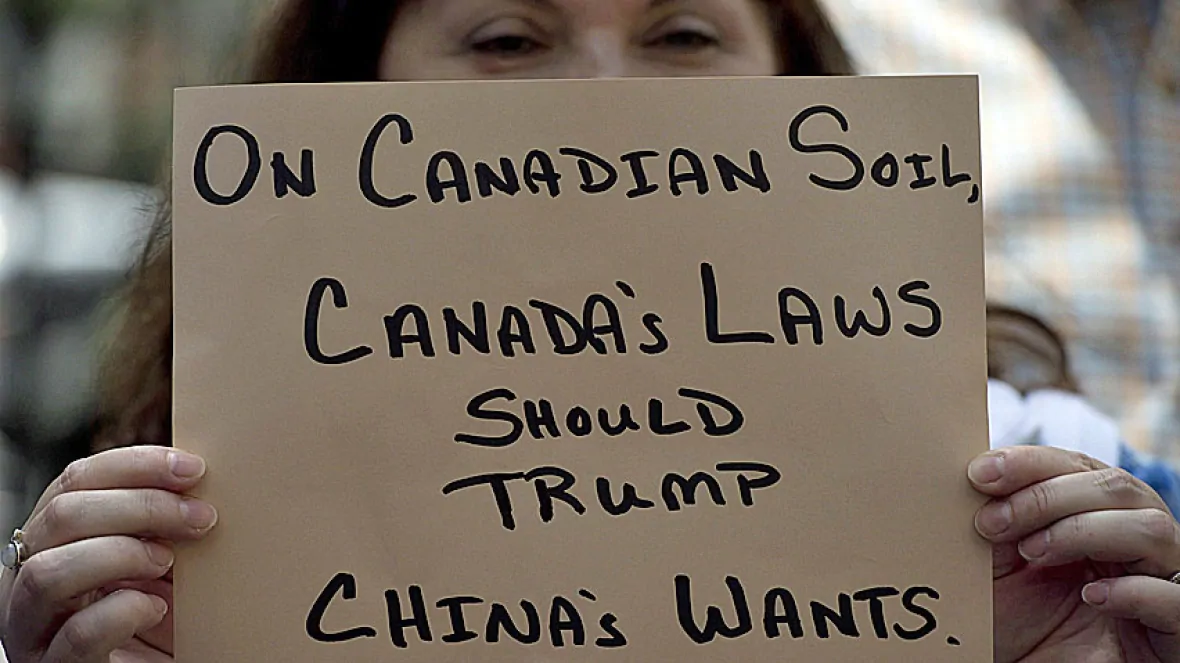 On Canadian Soil,
Canada's Laws
Should
Trump
China's Wants.